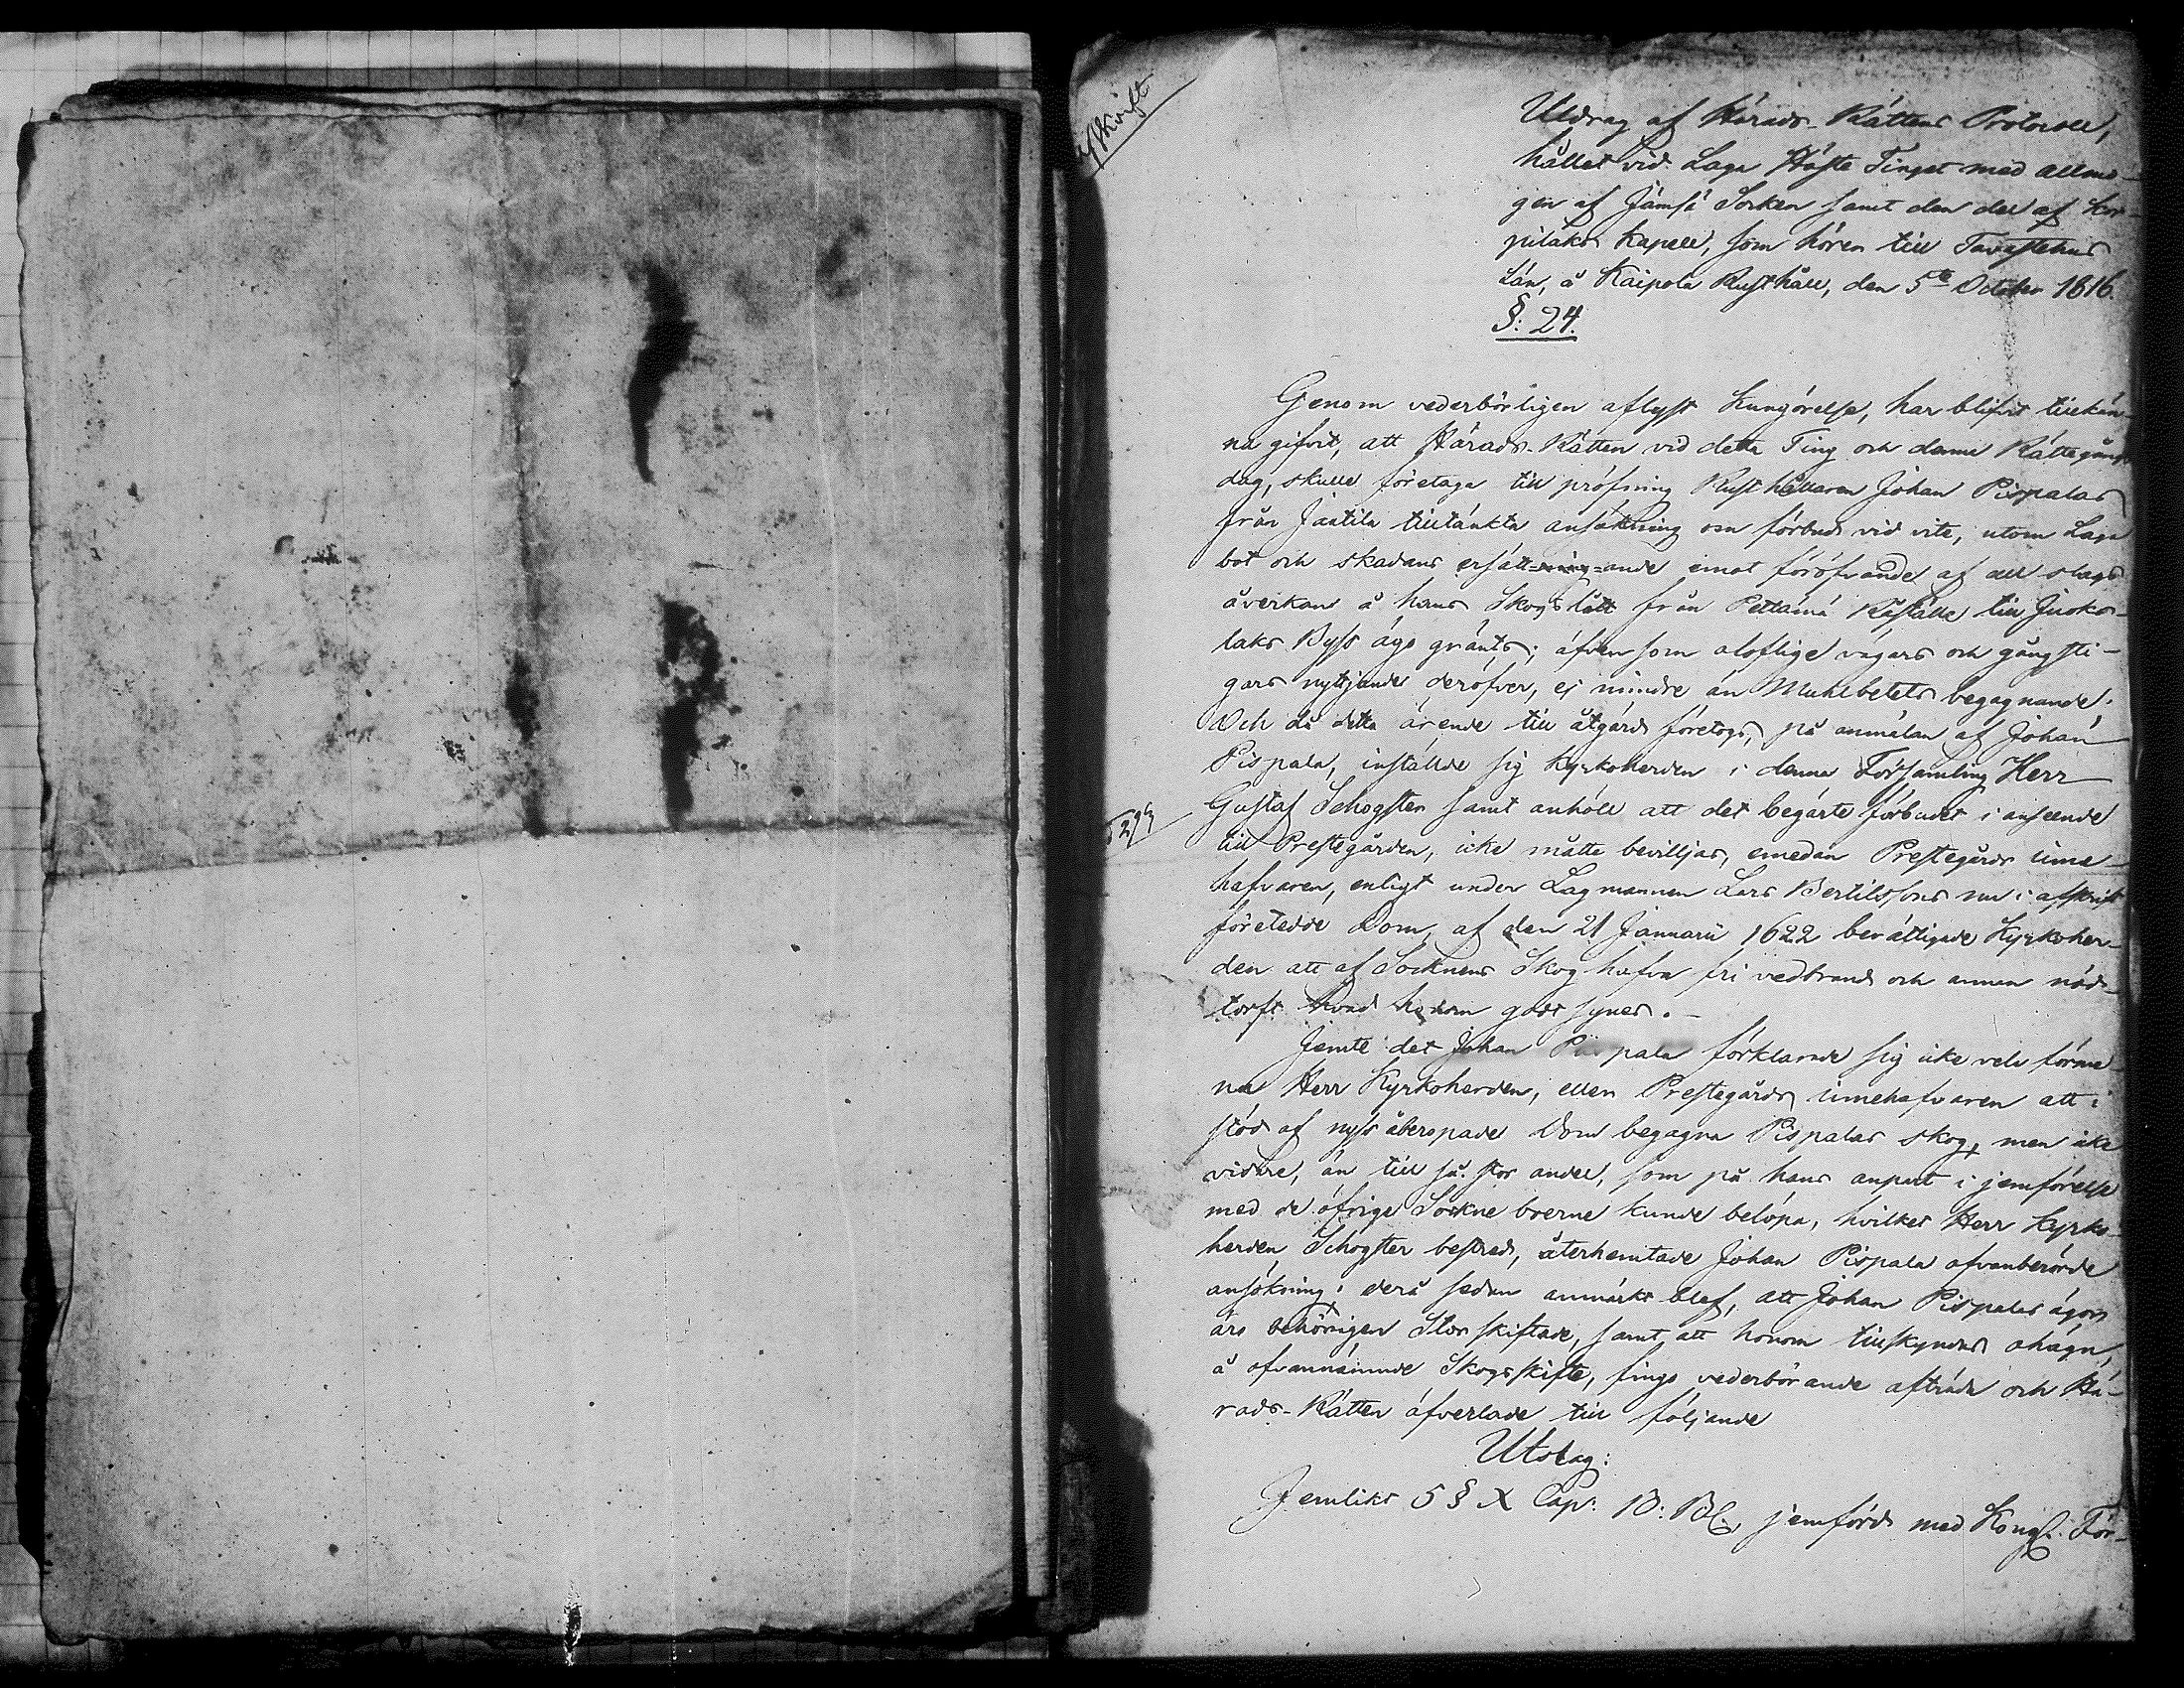 afskrift
Utdrag af Härads-Rättens Protocoll,
hållet vid Laga Höste Tinget med allmo-
gen af Jämsä Socken samt den del af Kor-
pilaks Kapell, som hören till Tavastehus
Län, å Kaipola Rusthåll, den 5te October 1816.
§: 24.
Genom vederbörligen aflyst Kungörelse, har blifvit tillkän-
na gifvit, att Härads-Rätten vid detta Ting och denna Rättegångs
dag, skulle företaga till pröfning Rusthållaren Johan Pispalas
från Jaatila tilltänkta ansökning om förbud vid vite, utom Laga
bot och skadans ersätt=ning=ande emot föröfvande af all slags
åverkan å hans Skogslått från Pettämä Råställe till Juoko-
laks Byss ägo gränts; äfven som oloflige vägars och gångsti-
gars nyttjande deröfver, ej mindre än Muhlbetets begagnande.
Och då detta ärende till åtgärd företogs, på anmälan af Johan
Pispala, inställde sig Kyrkoherden i denna Församling Herr
Gustaf Schogster samt anhöll att det begärte förbudet i anseende
till Prestegården, icke måtte bevilljas, emedan Prestegårds inne-
hafvaren, enligt under Lagmannen Lars Bertilssons nu i afskrift
företedde Dom, af den 21 Januarii 1622 berättigade Kyrkoher-
den att af Socknens Skog hafva fri vedbrand och annan nöd-
torft hvad honom godt synes.-
Jemte det Johan Pispala förklarade sig icke vela förme-
na Herr Kyrkoherden, eller Prestegårds innehafvaren att i
stöd af nyss åberopade Dom begagna Pispalas skog, men icke
vidare, än till så stor andel, som på hans anpart i jemförelse
med de öfrige Sockne boerne kunde belöpa, hvilket Herr Kyrko-
herden Schogster bestred, återhemtade Johan Pispala ofvanberörde
ansökning; derå sedan anmärkt blef, att Johan Pispalas ägor
äro behörigen Storskiftade, samt att honom tillskyndas ohägn,
å ofvannämnde Skogsskifte, fingo vederbörande afträda och Hä-
rads-Rätten öfverlade till följande
Utslag:
Jemlikt 5 § X Cap: B: B. jemförd med Kongl. För-